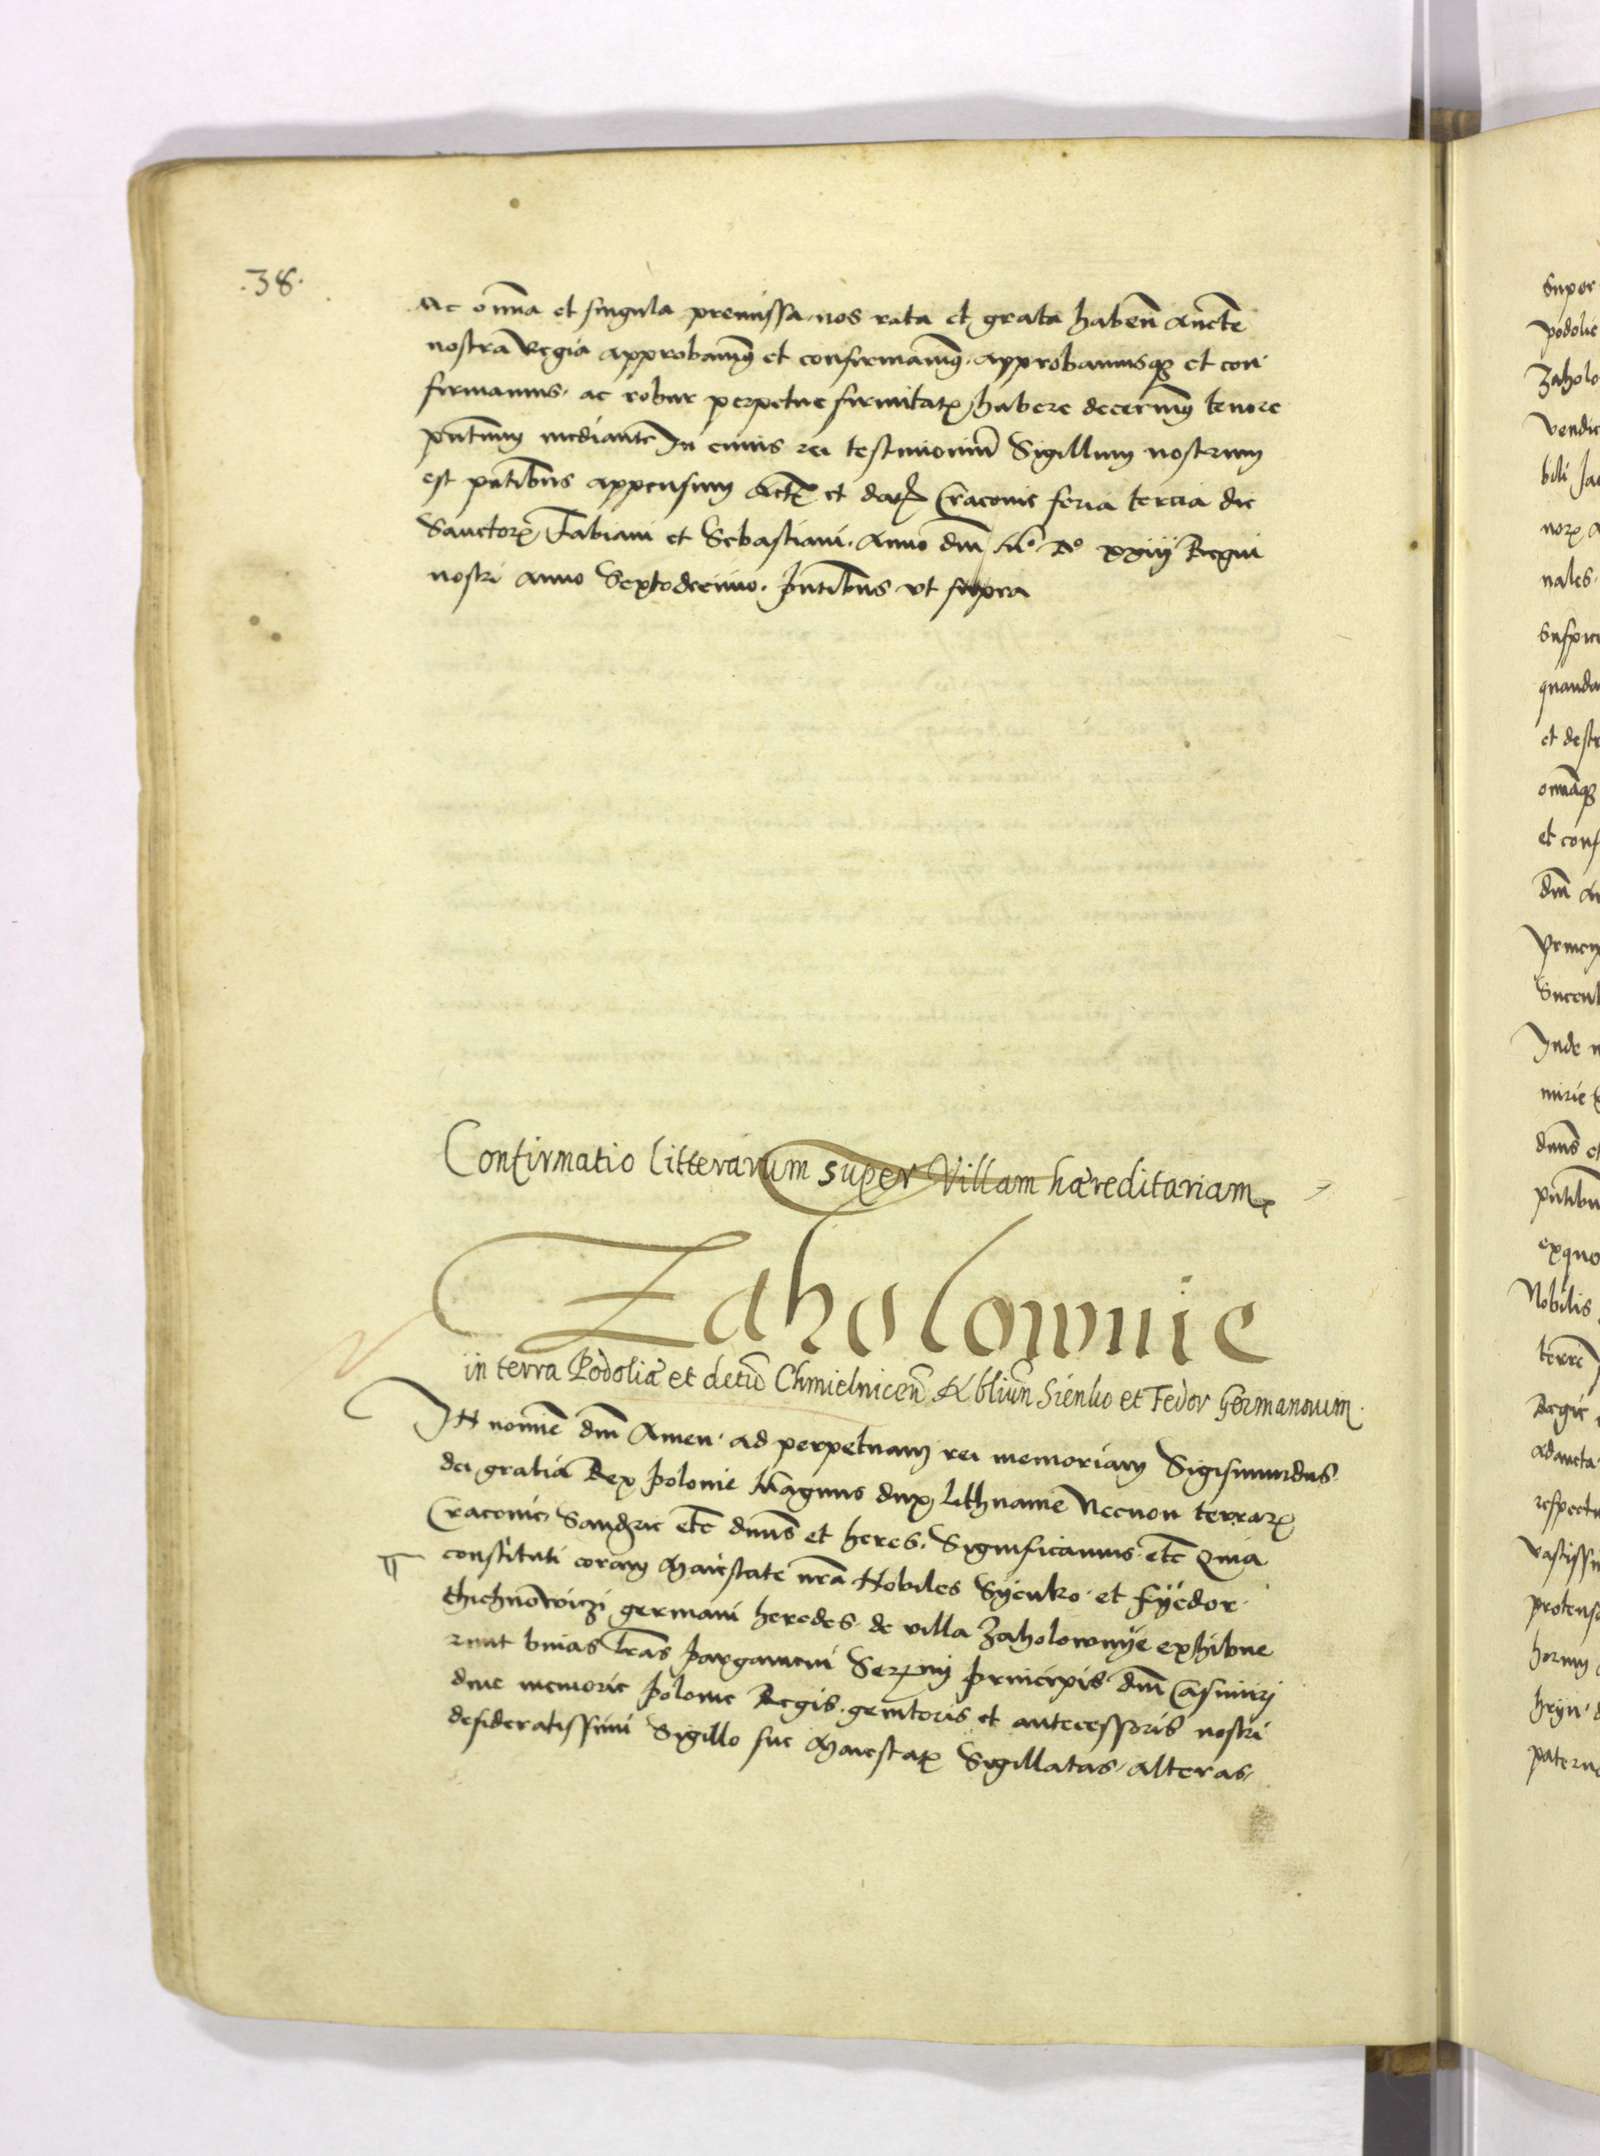 .38.
Ac omnia et singula premissa nos rata et grata haben aucte
nostra Regia approbamus et confirmamus approbamusque et con
firmamus ac robur perpetue firmitatis habere decernimus tenore
pntium mediante In cuius rei testimonium Sigillum nostrum
est pntibus appensum Actum et datum Cracovie feria tercia die
Sanctorum Fabiani et Sebastiani Anno dni Mo Do xxiij Regni
nostri anno Septodecimo. pntibus ut supra
Confirmatio litterarum super Villam hæreditariam
Zaholownie
in terra Podoliæ et distctu Chmielnicen Sienko et Fedor Germanorum.
IN nomine dni Amen ad perpetuam rei memoriam Sigismundus
dei gratia Rex polonie Magnus dux lithuanie Necnon terrarum
Cracovie Sandomirie etc dnus et heres. Significamus etc Quia
constituti coram Maiestate nra Nobiles Syenko et Fyedor
germani heredes de villa Zaholownye exhibue
runt binas lras pargameni Sermi principis dni Casimiri
dive memorie polonie Regis genitoris et antecessoris nostri
desideratissimi Sigillo sue Maiestatis Sigillatas Alteras
super
podolie
Zaholo
vendic
bili Ja
norum
nales
suspic
quanda
et destr
omniaque
et conf
dni
princip
Inde
dnus et
pntibu
exquo
Nobilis
terre
Regie
respectu
vastissi
protens
horum
paterna